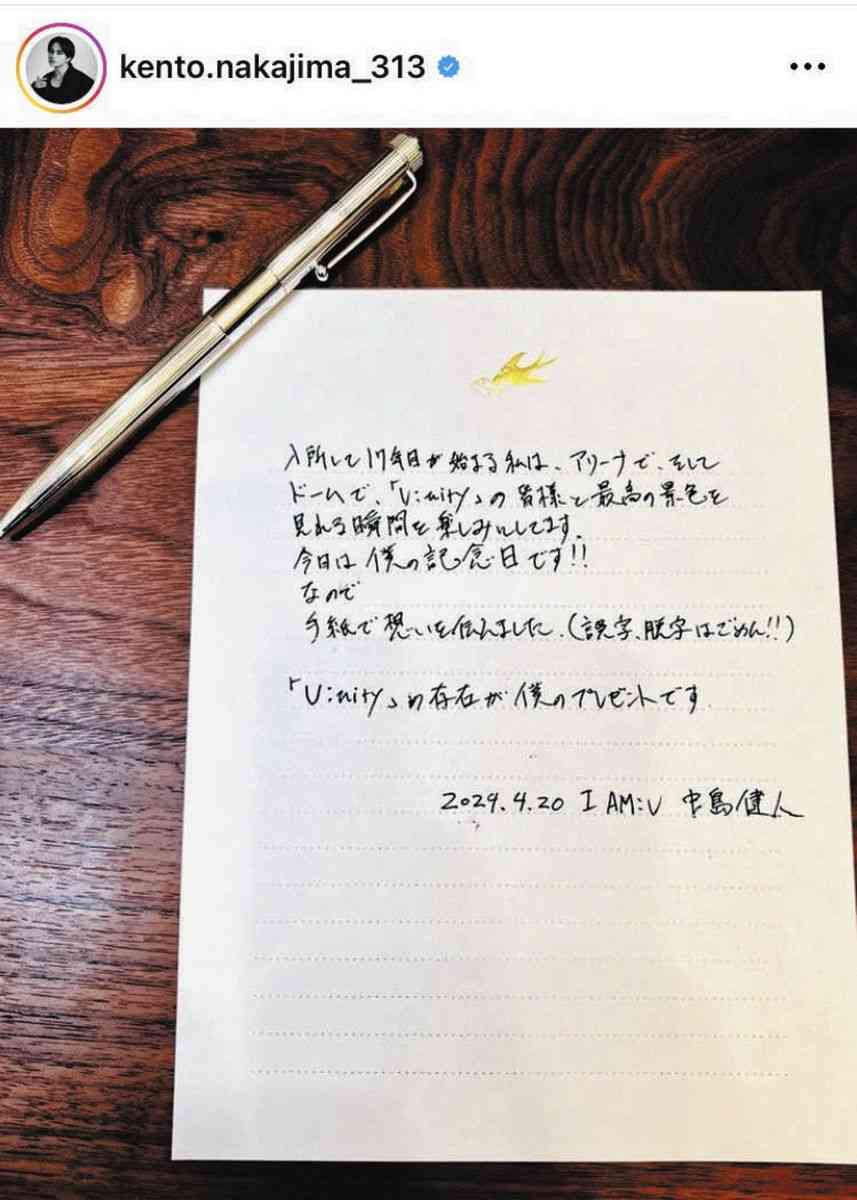 kento.nakajima_313
入所して17年目が始まる私は、アリーナで、そして
ドームで、「U:nity」の皆様と最高の景色を
見れる瞬間を楽しみにしてます。
今日は僕の記念日です!!
なので
手紙で想いを伝えました。(誤字、脱字はごめん!!)
「U:nity」の存在が僕のプレゼントです。
2024.4.20 I AM:U 中島健人